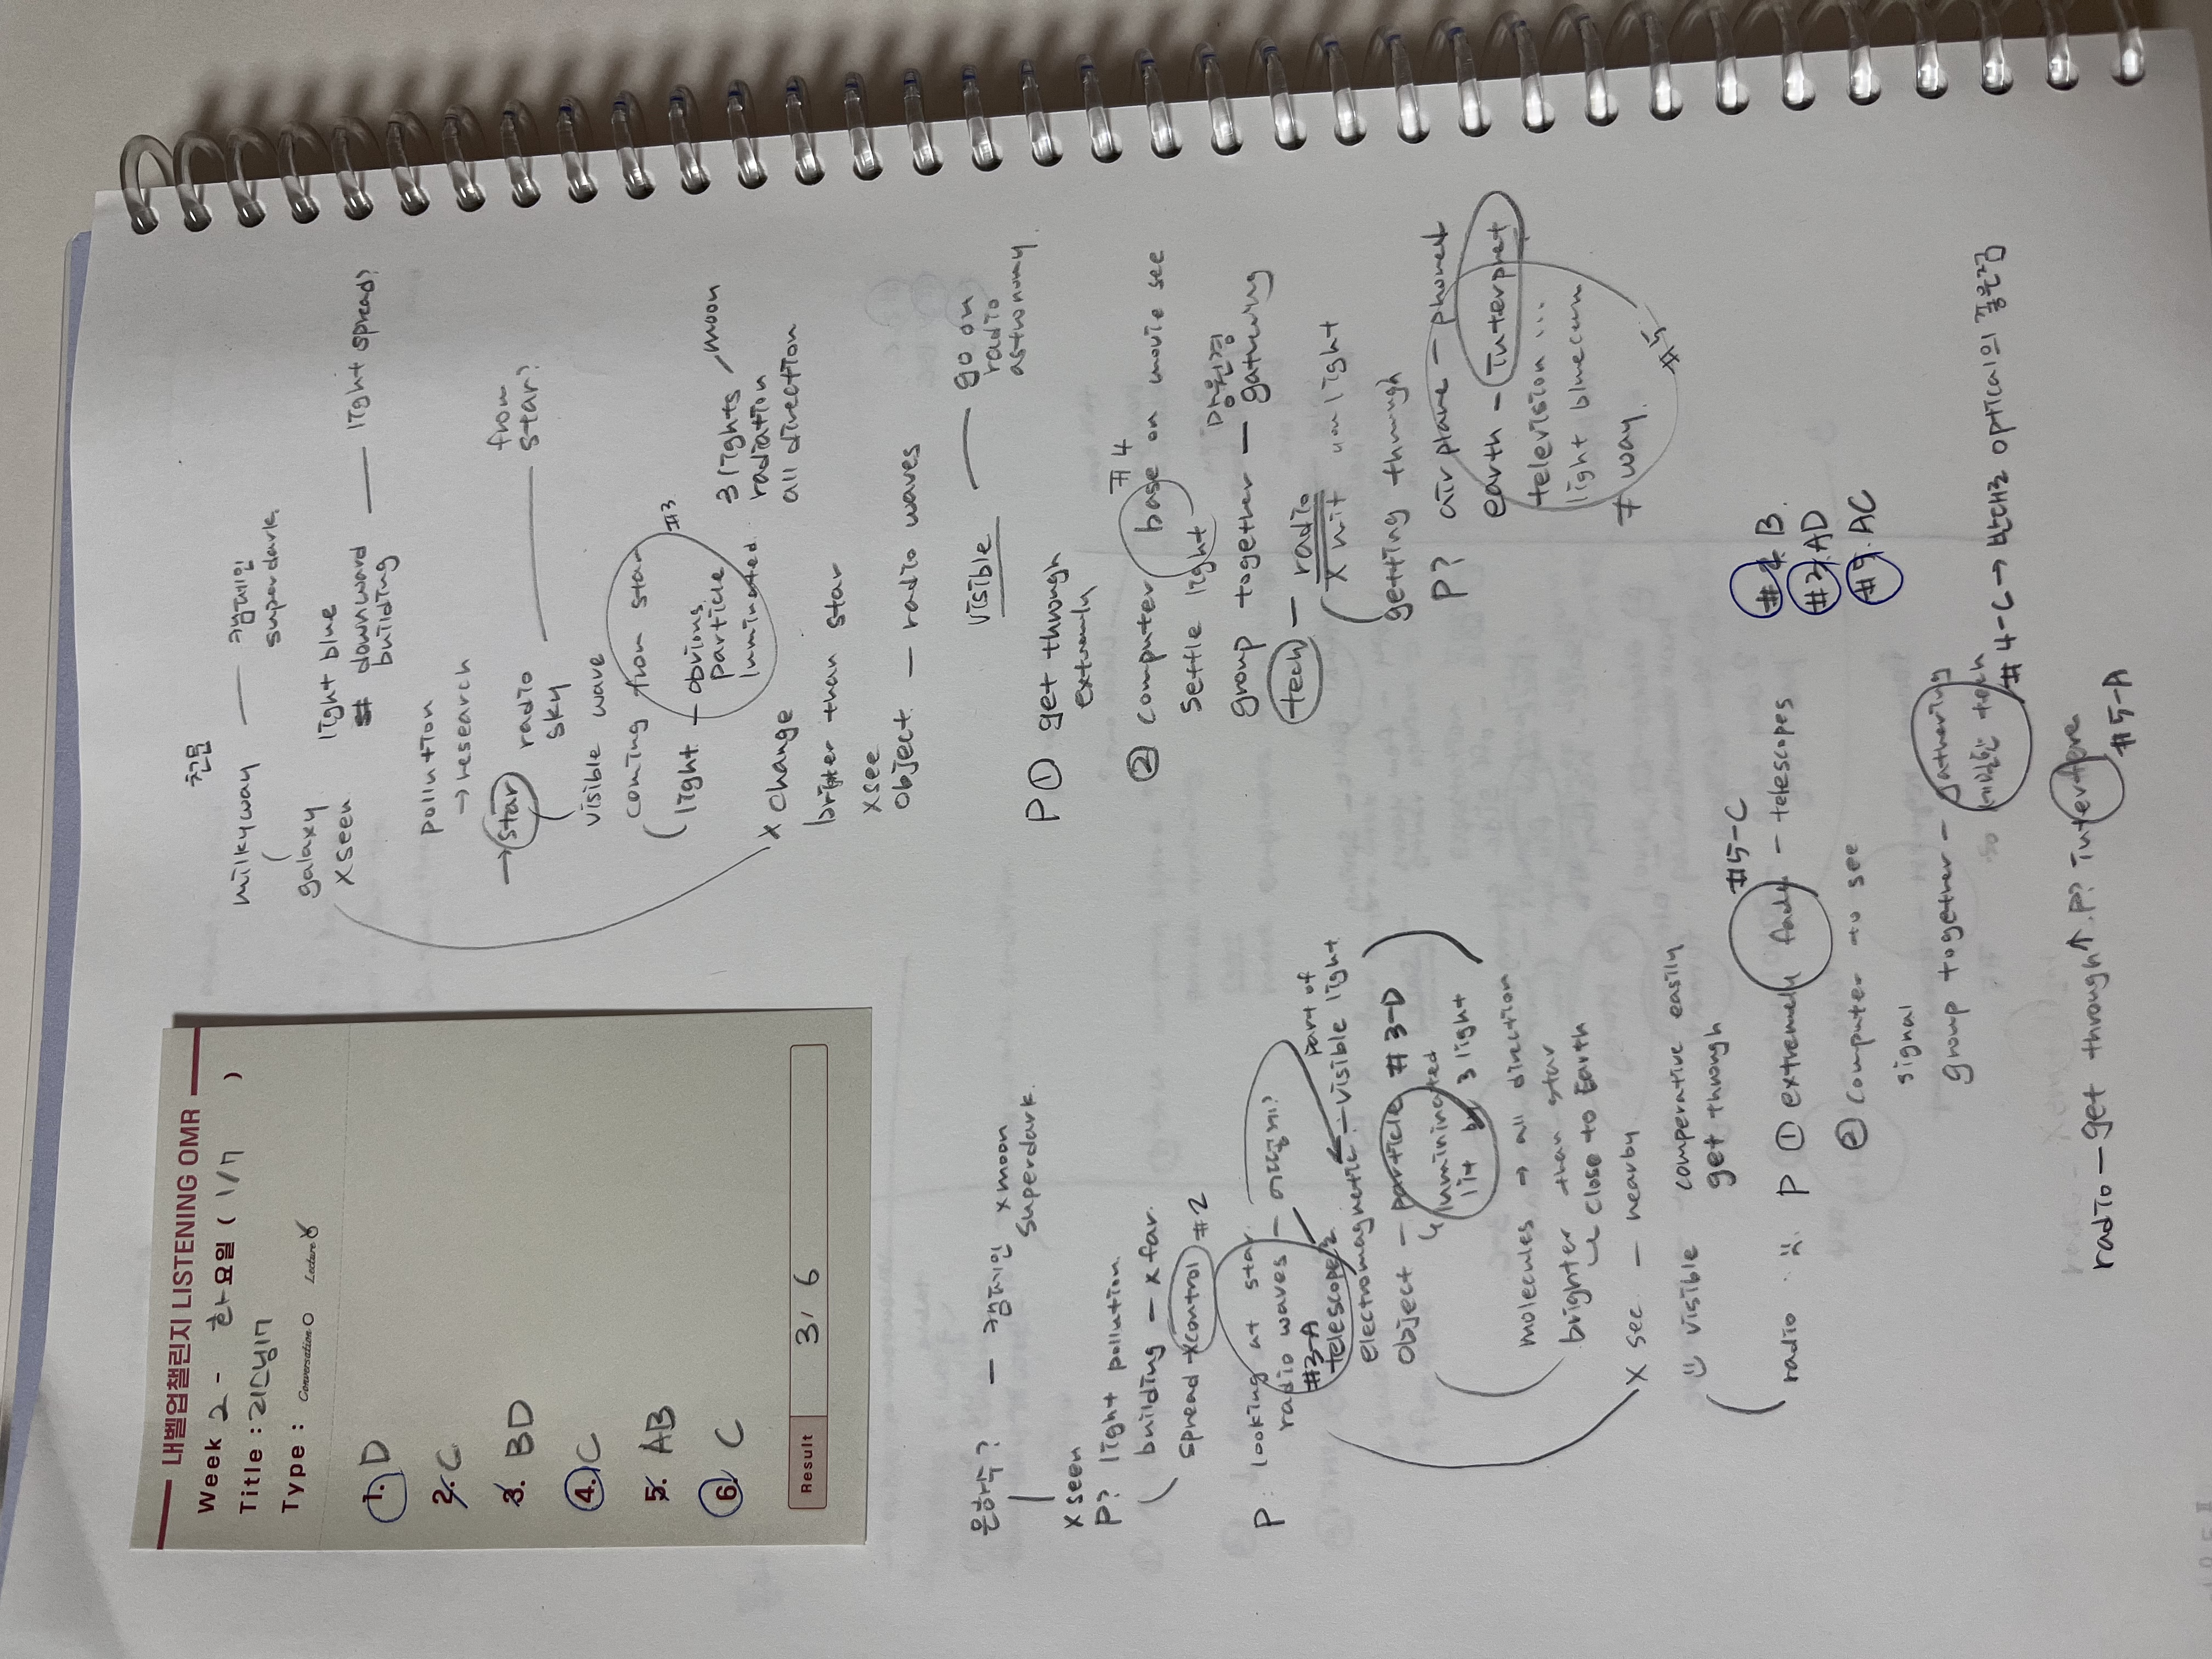 내벨업챌린지 LISTENING OMR
Week 2 - 화요일 ( 1/7 )
Title : 리스닝17
Type : Conversation O Lecture
1. D
2. C
3. BD
4. C
5. AB
6. C
Result 3 / 6
은하수? — 캠페인 x moon
superdark.
x seen
P? light pollution
building — x far.
spread - x control #2
P: looking at star
radio waves — 어떻게?
#3-A
telescope
part of
electromagnetic — visible light
object — particle #3-D
lit by 3 light
molecules → all direction
brighter than star
close to Earth
x see — nearby
visible comparative easily
get through
radio P ① extremely — telescopes
#5-C
② computer to see
signal
group together — gathering
tech
#4-C → 반대로 optical의
radio — get through↑. P? interfere
#5-A
천문
milkyway — 캠페인
superdark
galaxy light blue
x seen downward — light spread?
building
pollution
→ research
→ star radio — from
sky star?
visible wave
coming from star #3
light — obvious
particle
3 lights moon
radiation
all direction
x change
brighter than star
x see
object — radio waves
visible — go on
radio
astronomy.
P ① get through
extremely
② computer base on movie see
#4
settle light
망원경
group together — gathering
tech — radio
x hit light
getting through
P? air plane — phonet
earth — interphet
television ...
light
≠ way.
#5
#2 B.
#3 AD
#5 AC